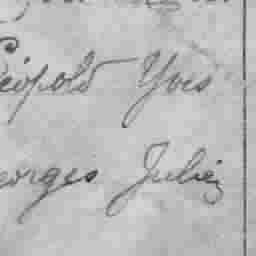 Léopold Yves
Georges Julien